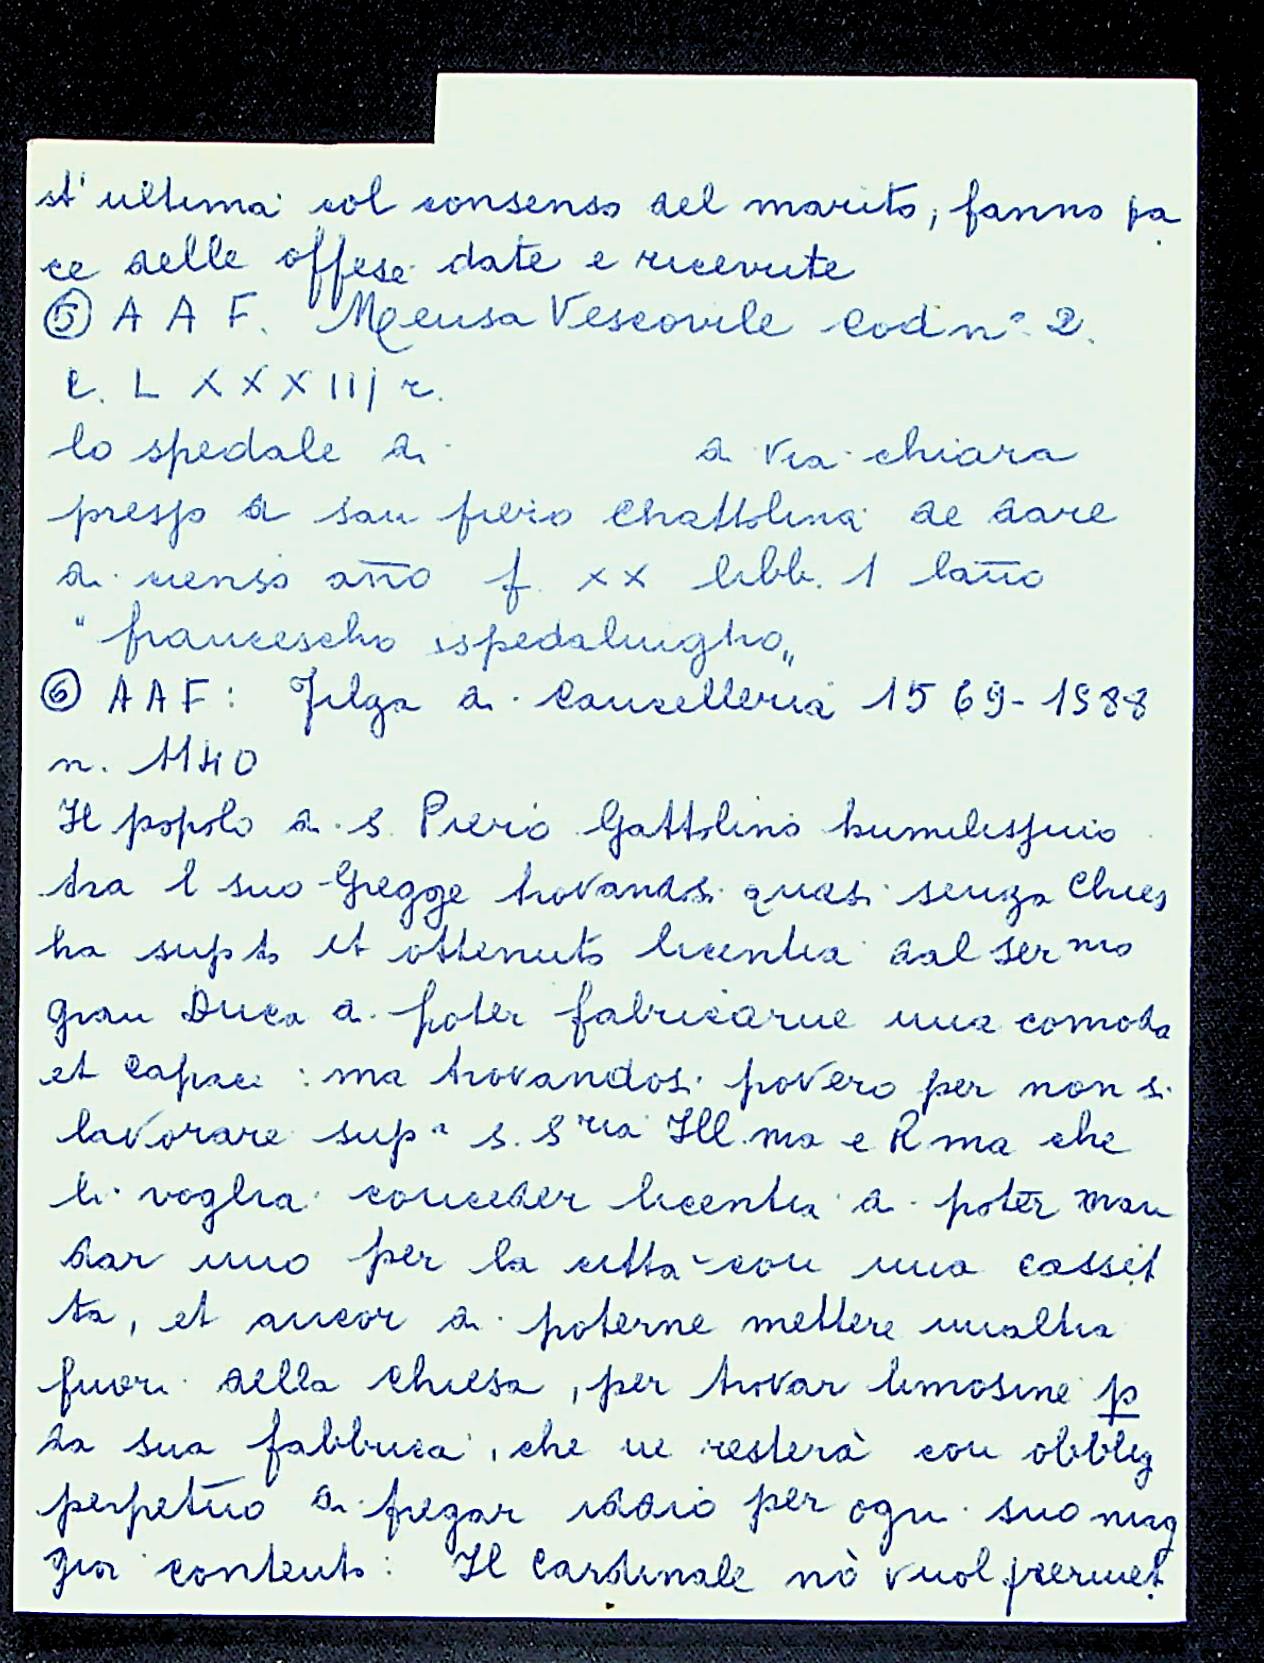 st'ultima col consenso del marito, fanno pa
ce delle offese date e ricevute
⑤ A A F. Mensa Vescovile Cod n° 2.
c. L X X X I I j r.
lo spedale di a via chiara
presso a san piero Chattolina de dare
di censo año f. xx libb. 1 laño
"francescho ispedalingho„
⑥ A A F: Filza di Cancelleria 1569-1588
n. 1140
Il popolo di S. Piero Gattolino humilissimo
tra l suo Gregge trovandsi quasi senza Chies
ha supto et ottenuto licentia dal Ser mo
gran Duca di poter fabricarne una comoda
et capace: ma trovandosi povero per non si
lavorare supa s. Sria Ill.ma e Rma che
li voglia conceder licentia di poter man
dar uno per la citta con una casset
ta, et ancor di poterne mettere unaltra
fuori della chiesa, per trovar limosine p
la sua fabbrica, che ne resterà con obblig
perpetuo di pregar iddio per ogni suo mag
gior contento: Il Cardinale nò vuol permet